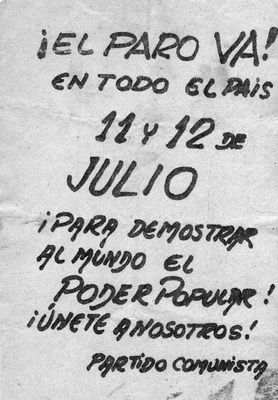 ¡EL PARO VA!
EN TODO EL PAIS
11 Y 12 DE
JULIO
¡PARA DEMOSTRAR
AL MUNDO EL
PODER POPULAR!
¡ÚNETE A NOSOTROS!
PARTIDO COMUNISTA